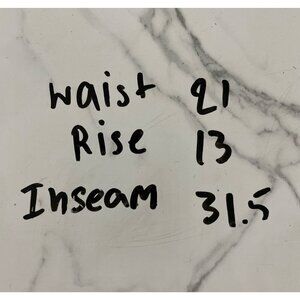 Waist 21
Rise 13
Inseam 31.5